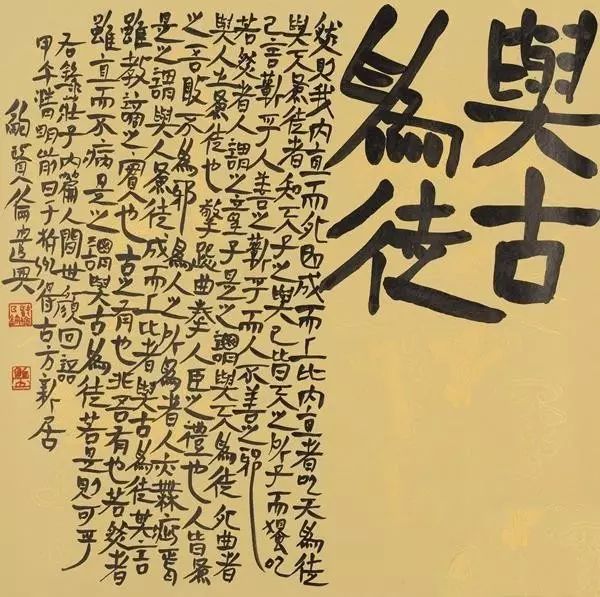 與古
為徒
然則我內直而外曲成而上比內直者與天為徒
與天為徒者知天子之與己皆天之所子而獨以
己言蘄乎人善之蘄乎而人不善之邪
若然者人謂之童子是之謂與天為徒外曲者
與人之為徒也擎跽曲拳人臣之禮也人皆為
之吾敢不為邪為人之所為者人亦無疵焉
是之謂與人為徒成而上比者與古為徒其言
雖教讁之實也古之有也非吾有也若然者
雖直而不病是之謂與古為徒若是則可乎
右錄莊子內篇人間世顏回語
甲午清明前日于杭州得古方新居
鮑賢倫遣興